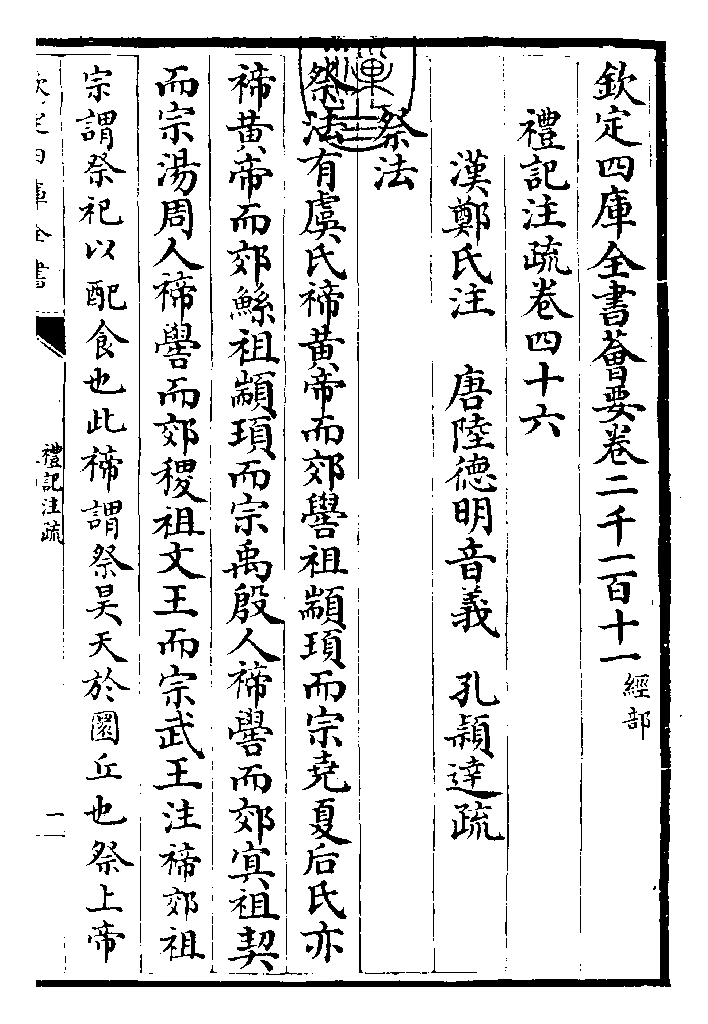 欽定四庫全書薈要卷二千一百十一 經部
禮記注疏卷四十六
漢鄭氏注 唐陸德明音義 孔穎達疏
祭法
祭法有虞氏禘黄帝而郊嚳祖顓頊而宗堯夏后氏亦
禘黄帝而郊鯀祖顓頊而宗禹殷人禘嚳而郊冥祖契
而宗湯周人禘嚳而郊稷祖文王而宗武王注禘郊祖
宗謂祭祀以配食也此禘謂祭昊天於圜丘也祭上帝
欽定四庫全書
禮記注疏
一